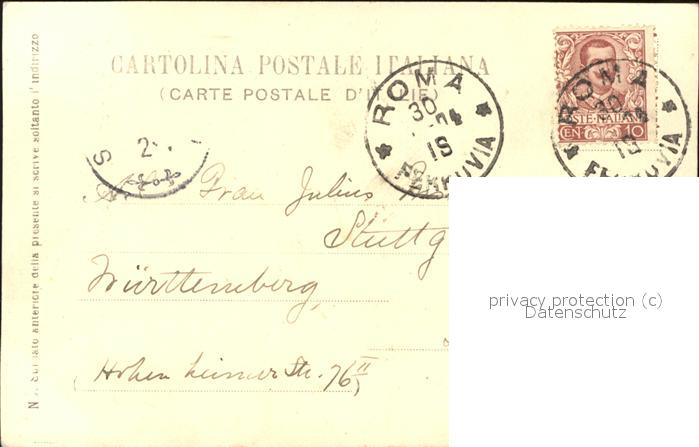 CARTOLINA POSTALE ITALIANA
(CARTE POSTALE D'ITALIE)
ROMA
30
04
18
FERROVIA
ROMA
30
04
18
POSTE ITALIANE
CEN 10
S
2
Frau Julius
Stuttg
Württemberg,
Hohenheimer Str. 76 II
N.B. Sul lato anteriore della presente si scrive soltanto l'indirizzo
privacy protection (c)
Datenschutz